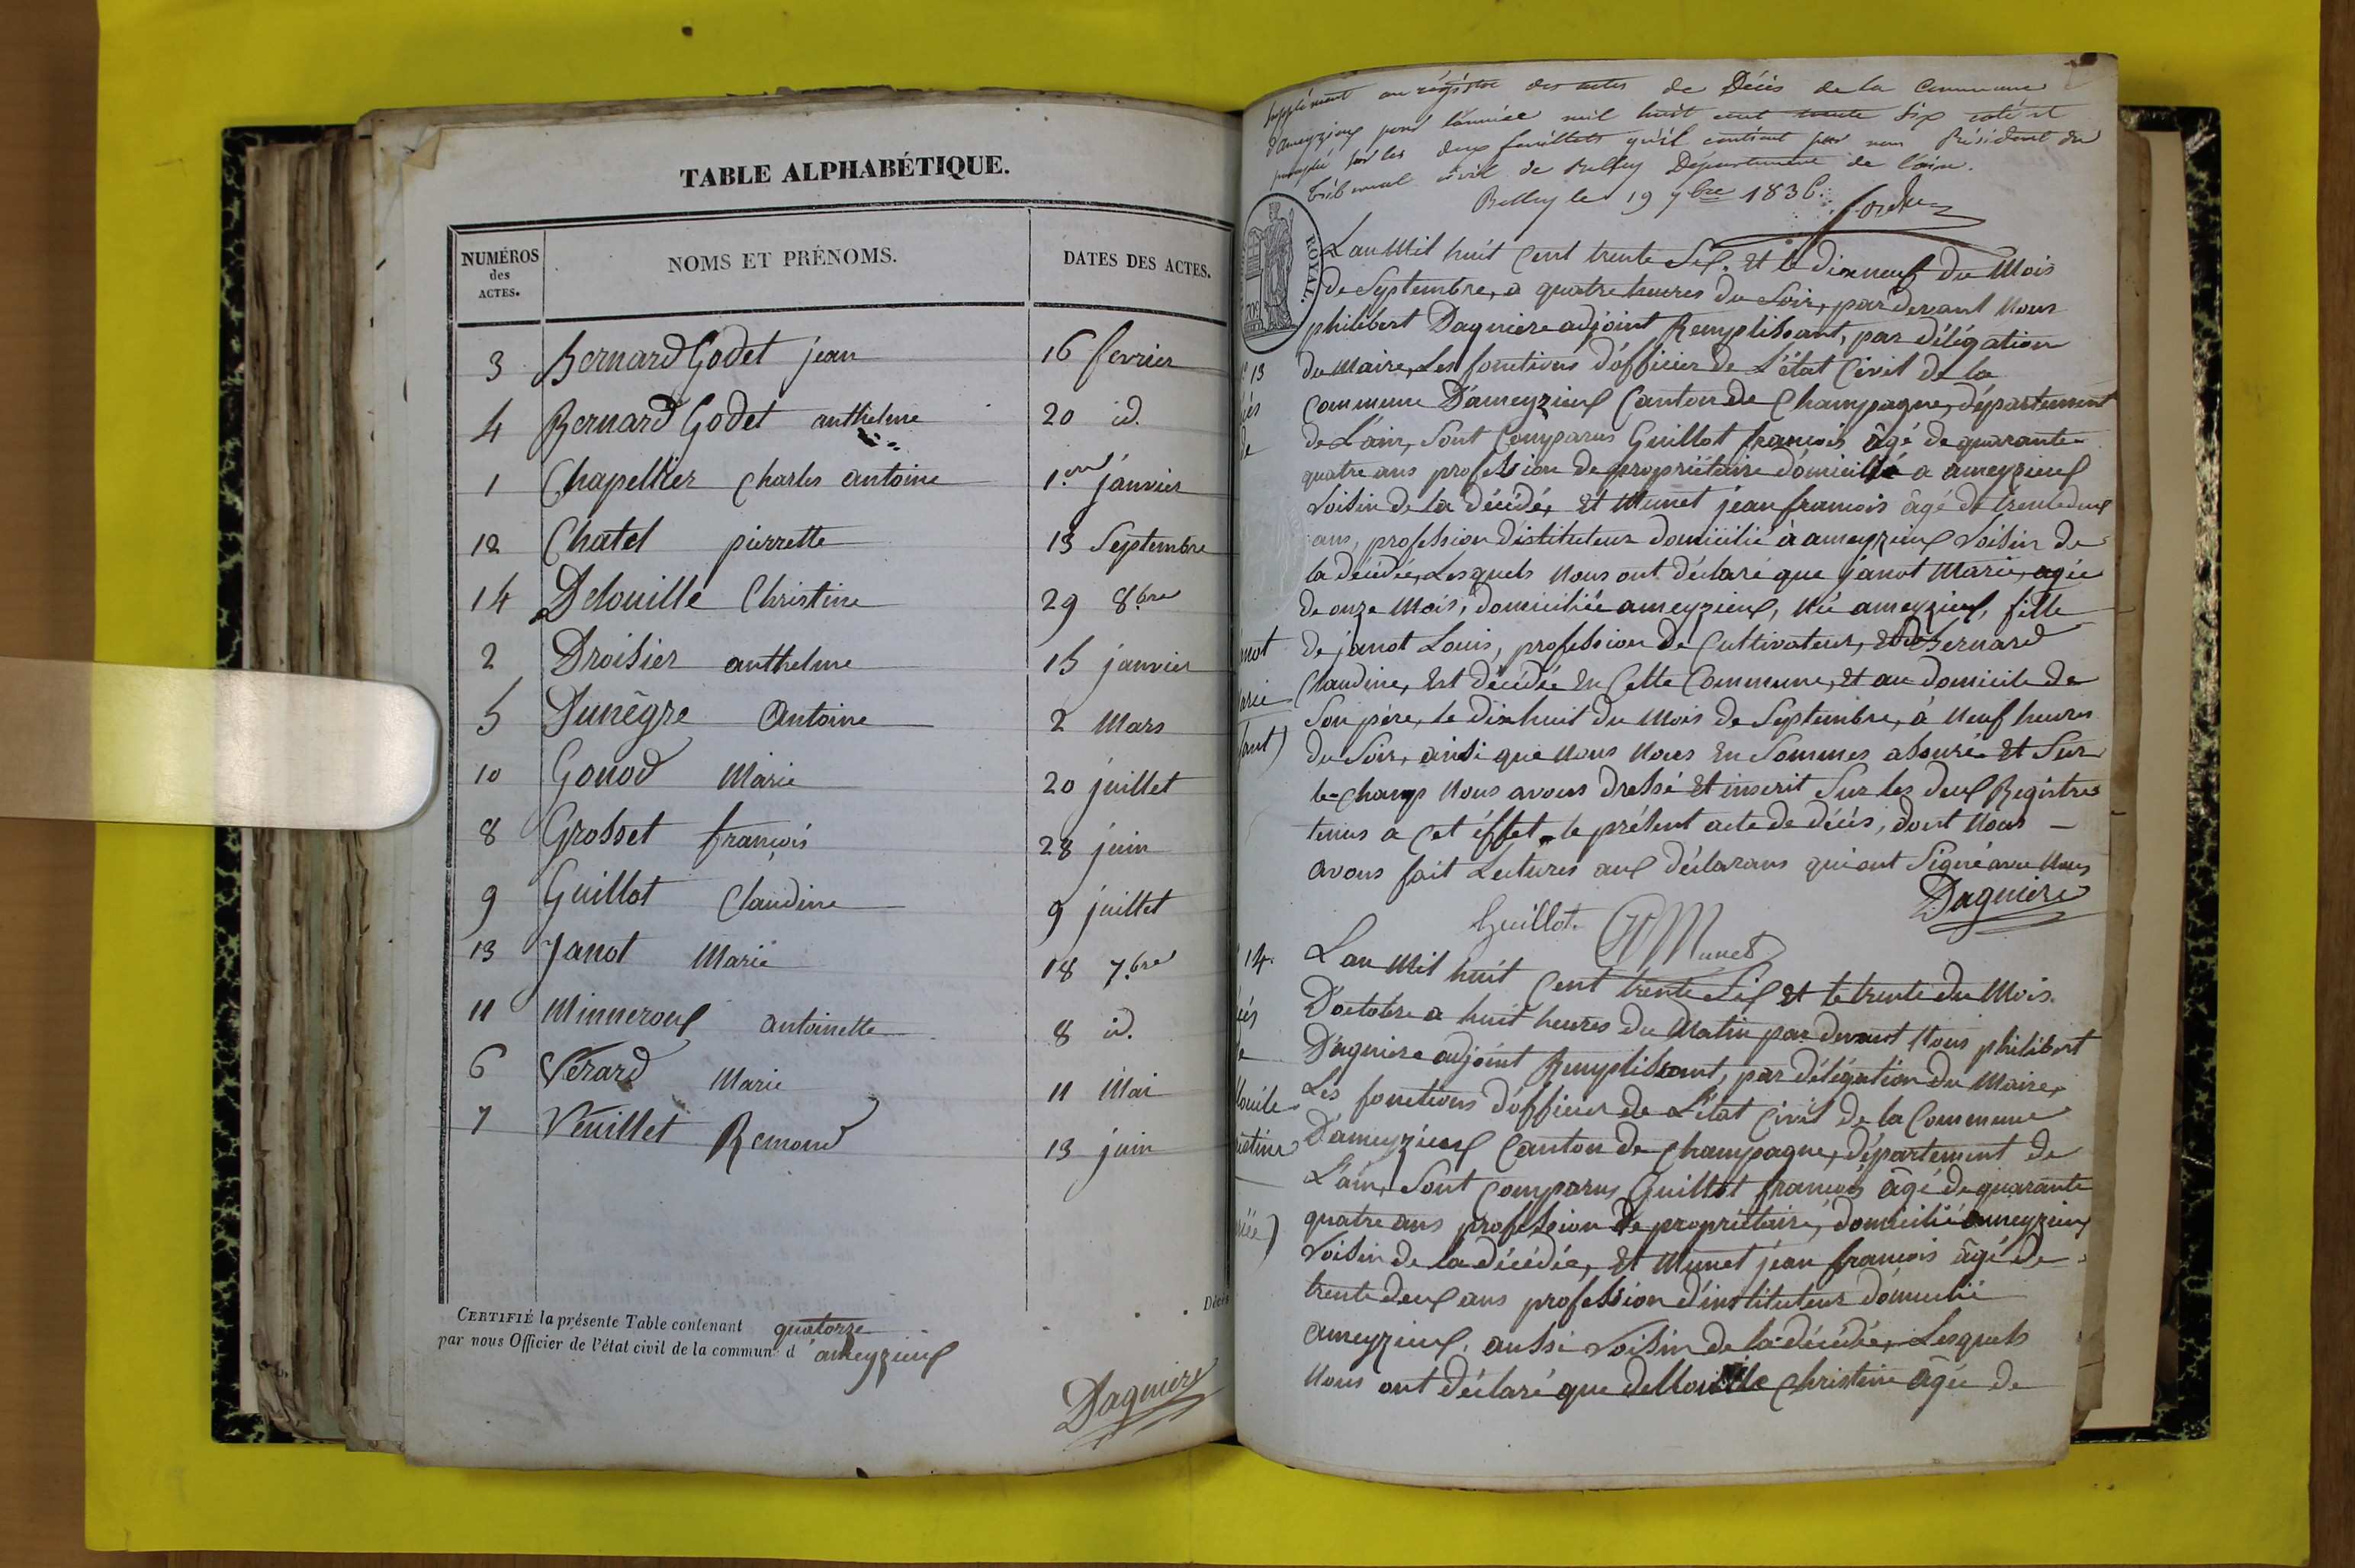 TABLE ALPHABÉTIQUE.
NUMÉROS des ACTES. NOMS ET PRÉNOMS. DATES DES ACTES.
3 Bernard Godet jean 16 fevrier
4 Bernard Godet anthelme 20 id.
1 Chapellier Charles antoine 1er janvier
12 Chatel pierrette 13 Septembre
14 Delouille Christine 29 8bre
2 Droisier anthelme 15 janvier
5 Dunêgre Antoine 2 Mars
10 Gonod Marie 20 juillet
8 Grosset françois 28 juin
9 Guillot Claudine 9 juillet
13 Janot Marie 18 7bre
11 Minneroux antoinette 8 id.
6 Vérard Marie 11 Mai
7 Veuillet Remond 13 juin
Décès
CERTIFIÉ la présente Table contenant quatorze
par nous Officier de l'état civil de la commune d'ameyzieux
Dagniere
Supplément au régistre des actes de Décès de la Commune
d'ameyzieux pour l'année mil huit cent trente six coté et
paraphé sur les deux feuillets qu'il contient par nous Président du
Tribunal civil de Belley Département de l'ain.
Belley le 19 7bre 1836.
ROYAL.
L'an Mil huit Cent trente Six. Et le dixneuf du Mois
de Septembre, a quatre heures du Soir, par devant Nous
philibert Dagniere adjoint Remplissant, par délégation
13 du Maire, Les fonctions d'officier de L'état Civil de la
ès Commune D'ameyzieux Canton de Champagne, département
de de L'ain, Sont Comparus Guillot françois âgé de quarante
quatre ans profession de propriétaire domicilié a ameyzieux
Voisin de la décédé, Et Munet jean francois âgé de trente deux
ans, profession d'istituteur domicilié à ameyzieux Voisin de
la décédée, Lesquels Nous ont déclaré que janot Marie, agée
de onze Mois, domiciliée ameyzieux, Née ameyzieux, fille
not de janot Louis, profession de Cultivateur, et de Bernard
arie Claudine, Est décédée En Cette Commune, Et au domicile de
fant) Son père, le dix huit du Mois de Septembre, à Neuf heures
du Soir, ainsi que Nous Nous En Sommes assuré. Et Sur
le-champ Nous avons dressé Et inscrit Sur les deux Registres
tenus a Cet éffet le présent acte de décès, dont Nous
avons fait Lectures aux déclarans qui ont Signé avec Nous
Guillot. Munet Dagniere
14. L'an Mil huit Cent trente Six Et le trente du Mois
ès D'octobre a huit heures du Matin par devant Nous philibert
de Dagniere adjoint Remplissant, par délégation du Maire,
louile Les fonctions d'officier de L'état Civil de la Commune
istine D'ameyzieux Canton de Champagne, département de
L'ain, Sont Comparus Guillot françois âgé de quarante
iée) quatre ans profession de propriétaire, domicilié ameyzieux
Voisin de la décédée, Et Munet jean francois âgé de
trente deux ans profession d'instituteur domicilié
ameyzieux, aussi Voisin de la décédée, Lesquels
Nous ont déclaré que dellouille Christine âgée de